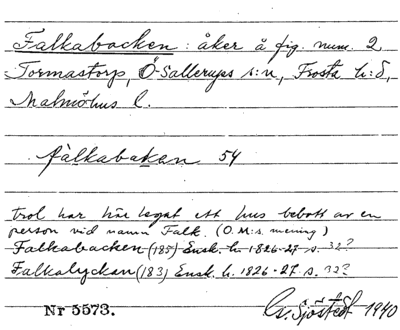 Falkabacken : åker å fig. num. 2
Tormastorp, Ö. Sallerups s:n, Frosta h:d,
Malmöhus l.
fàlkabakan 54
trol har här legat ett hus bebott av en
person vid namn Falk. (O.M:s mening)
Falkabacken (185) Ensk. h. 1826-27 s. 32?
Falkalyckan (183) Ensk. h. 1826-27 s. 32?
Nr 5573.
G. Sjöstedt 1940